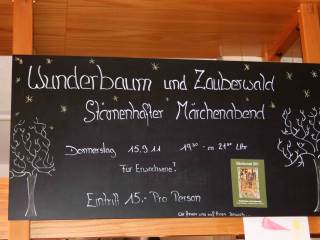 Wunderbaum und Zauberwald
Stimmenhafter Märchenabend
Donnerstag 15.9.11 19³⁰ - ca 21³⁰ Uhr
Für Erwachsene!
Eintritt 15.- Pro Person
Wir freuen uns auf Ihren Besuch...